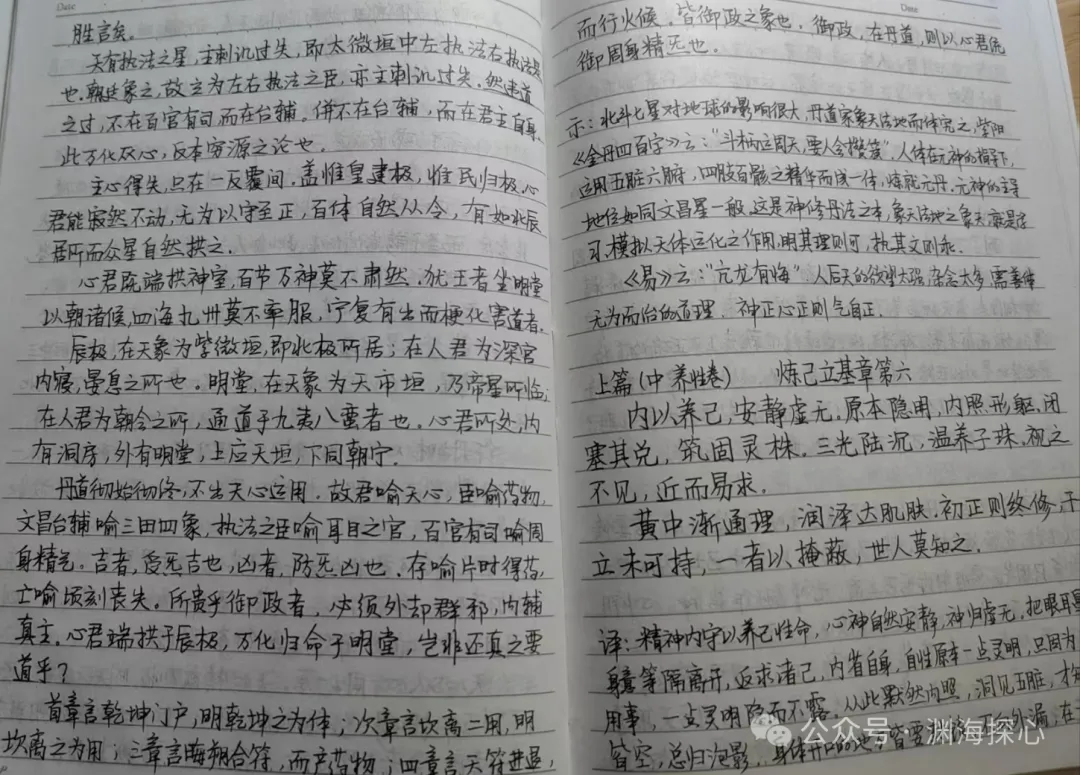 Date
胜言矣。
天有执法之星,主刺讥过失,即太微垣中左执法右执法是
也。朝廷象之,故立为左右执法之臣,亦主刺讥过失。然
之过,不在百官有司,而在台辅。併不在台辅,而在君主自身。
此万化从心,反本穷源之论也。
主心得失,只在一反覆间。盖惟皇建极,惟民归极。心
君能寂然不动,无为以守至正,百体自然从令,有如北辰
居所而众星自然拱之。
心君既端拱神室,百节万神莫不肃然。犹王者坐明堂
以朝诸侯,四海九州莫不率服,宁复有出而梗化害道者。
辰极,在天象为紫微垣,即北极所居;在人君为深宫
内寝,晏息之所也。明堂,在天象为天市垣,乃帝星所临;
在人君为朝令之所,通道于九夷八蛮者也。心君所处,内
有洞房,外有明堂,上应天垣,下同朝宁。
丹道彻始彻终,不出天心运用。故君喻天心,臣喻药物,
文昌台辅喻三田四象,执法之臣喻耳目之官,百官有司喻周
身精炁。吉者,受炁吉也,凶者,防炁凶也。存喻片时得药,
亡喻顷刻丧失。所贵乎御政者,必须外却群邪,内辅
真主。心君端拱于辰极,万化归命于明堂,岂非还真之要
道乎?
首章言乾坤门户,明乾坤之为体;次章言坎离二用,明
坎离之为用;三章言晦朔合符,而产药物;四章言天符进退,
Date
而行火候。皆御政之象也。御政,在丹道,则以心君统
御周身精炁也。
示:北斗七星对地球的影响很大,丹道家象天法地而体究之,紫阳
《金丹四百字》云:"斗柄运周天,要人会攒簇"。人体在元神的指挥下,
运用五脏六腑,四肢百骸之精华而成一体,炼就元丹。元神的主导
地位如同文昌星一般,这是神修丹法之本,象天法地之象天就是学
习、模拟天体运化之作用,明其理则可,执其文则乖。
《易》云:"亢龙有悔"。人后天的欲望太强,杂念太多,需善体
无为而治的道理,神正心正则气自正。
上篇(中 养性卷) 炼己立基章第六
内以养己,安静虚无。原本隐用,内照形躯。闭
塞其兑,筑固灵株。三光陆沉,温养子珠,视之
不见,近而易求。
黄中渐通理,润泽达肌肤。初正则终修,干
立未可持,一者以掩蔽,世人莫知之。
译:精神内守以养己性命,心神自然安静,神归虚无。把眼耳鼻
身意等隔离开,返求诸己,内省自身,自性原本一点灵明,只因为
用事,一点灵明隐而不露。从此默然内照,洞见五脏,才知
皆空,总归泡影。身体开口的地方
公众号·渊海探心